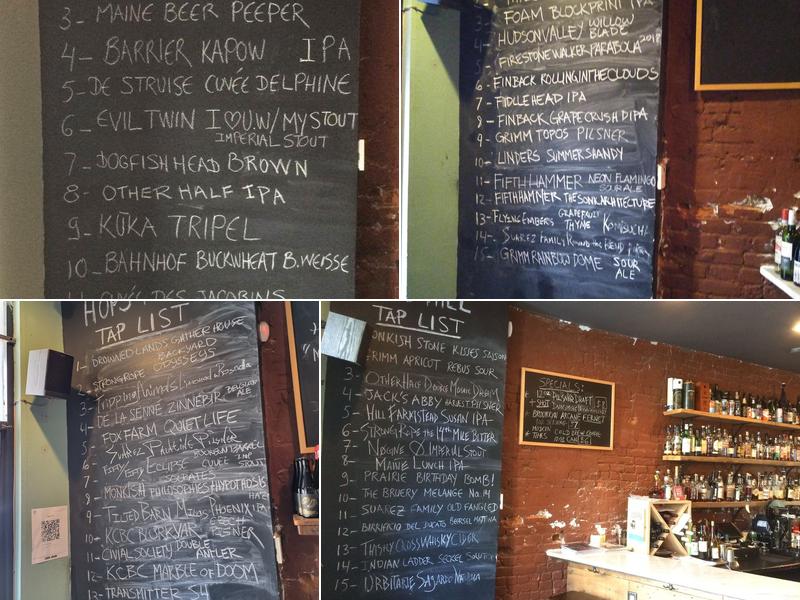 3- MAINE BEER PEEPER
4- BARRIER KAPOW IPA
5- DE STRUISE CUVÉE DELPHINE
6- EVIL TWIN I♡U.W/MY STOUT
IMPERIAL STOUT
7- DOGFISH HEAD BROWN
8- OTHER HALF IPA
9- KŪKA TRIPEL
10- BAHNHOF BUCKWHEAT B. WEISSE
CUVÉE DES JACOBINS
3- FOAM BLOCKPRINT IPA
4- HUDSON VALLEY WILLOW
BLADE
5- FIRESTONE WALKER PARABOLA 2018
6- FINBACK ROLLING IN THE CLOUDS
7- FIDDLEHEAD IPA
8- FINBACK GRAPE CRUSH DIPA
9- GRIMM TOPOS PILSNER
10- LINDERS SUMMER SHANDY
11- FIFTH HAMMER NEON FLAMINGO
SOUR ALE
12- FIFTH HAMMER THE SONIC ARCHITECTURE
13- FLYING EMBERS GRAPEFRUIT
THYME KOMBUCHA
14- SUAREZ FAMILY ROUND THE BEND
15- GRIMM RAINBOW DOME SOUR
ALE
HOPS
TAP LIST
1- DROWNED LANDS GATHER HOUSE
2- STRONG ROPE BACKYARD
ODYSSEYS
3- Tripping Animals
BELGIAN
ALE
4- DE LA SENNE ZINNEBIR
5- FOX FARM QUIET LIFE
6- Suarez Palatine Pilsner
7- ECLIPSE CUVEE
STOUT
8- MONKISH PHILOSOPHIES HYPOTHOSIS
HAZY
9- TILTED BARN MILOS PHOENIX IPA
10- KCBC BORKVAR CZECH
PILSNER
11- SOCIETY DOUBLE
ANTLER
12- KCBC MARBLE OF DOOM
13- TRANSMITTER S4
HILL
TAP LIST
MONKISH STONE KISSES SAISON
GRIMM APRICOT REBUS SOUR
3- OTHER HALF DOUBLE MOSAIC DREAM
4- JACK'S ABBY HARVEST PILSNER
5- HILL FARMSTEAD SUSAN IPA
6- STRONG ROPE THE 14TH MILE BITTER
7- NØGNE Ø IMPERIAL STOUT
8- MAINE LUNCH IPA
9- PRAIRIE BIRTHDAY BOMB!
10- THE BRUERY MELANGE NO. 14
11- SUAREZ FAMILY OLD FANGLED
12- BIRRIFICIO DEL DUCATO BEERSEL MATTINA
13- CIDER
14- INDIAN LADDER SECKEL SOLUTION
15- URBITARTE SAGARDO
SPECIALS:
12OZ PILSNER DRAFT
+ SHOT
BROOKLYN ARCANE FERNET